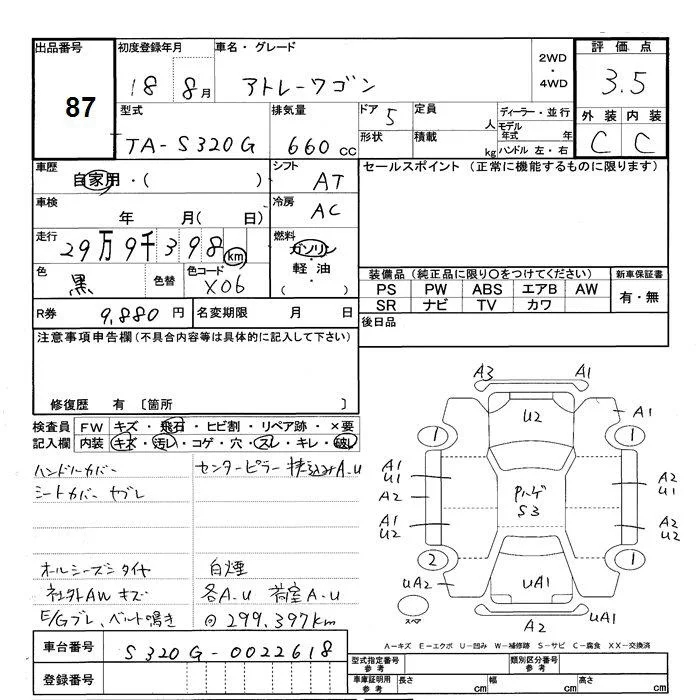 出品番号
87
初度登録年月
18 8月
車名・グレード
アトレーワゴン
2WD
・
4WD
評価点
3.5
外装 内装
C C
型式
TA-S320G
排気量
660cc
ドア 5
形状
定員 人
積載 kg
ディーラー・並行
モデル年式 年
ハンドル 左・右
車歴
自家用・( )
シフト
AT
車検
年 月( 日)
冷房
AC
走行
29万9千398km
燃料
ガソリン
・
軽油
( )
色
黒
色替
色コード
X06
R券 9,880円
名変期限 月 日
セールスポイント(正常に機能するものに限ります)
装備品(純正品に限り〇をつけてください)
PS PW ABS エアB AW
SR ナビ TV カワ
新車保証書
有・無
後日品
注意事項申告欄(不具合内容等は具体的に記入して下さい)
修復歴 有 〔箇所 〕
検査員記入欄
FW キズ・飛石・ヒビ割・リペア跡・×要
内装 キズ・汚レ・コゲ・穴・スレ・キレ・破レ
ハンドルカバー
センターピラー 押込みA.U
シートカバー ヤブレ
オールシーズンタイヤ
白煙
社外AW キズ
各A.U 荷室A.U
E/Gブレ、ベルト鳴き
@299,397km
車台番号 S320G-0022618
登録番号
A3 A1
U2
A1
1 1
A1
U1
A2
A1
U2
Pハゲ
S3
A2
U1
A2
A2
U2
2 1
UA2
UA1
UA2
スペア
UA1
A2
A-キズ E-エクボ U-凹み W-補修跡 S-サビ C-腐食 XX-交換済
型式指定番号
参考
類別区分番号
参考
車庫証明用
参考
長さ cm
幅 cm
高さ cm